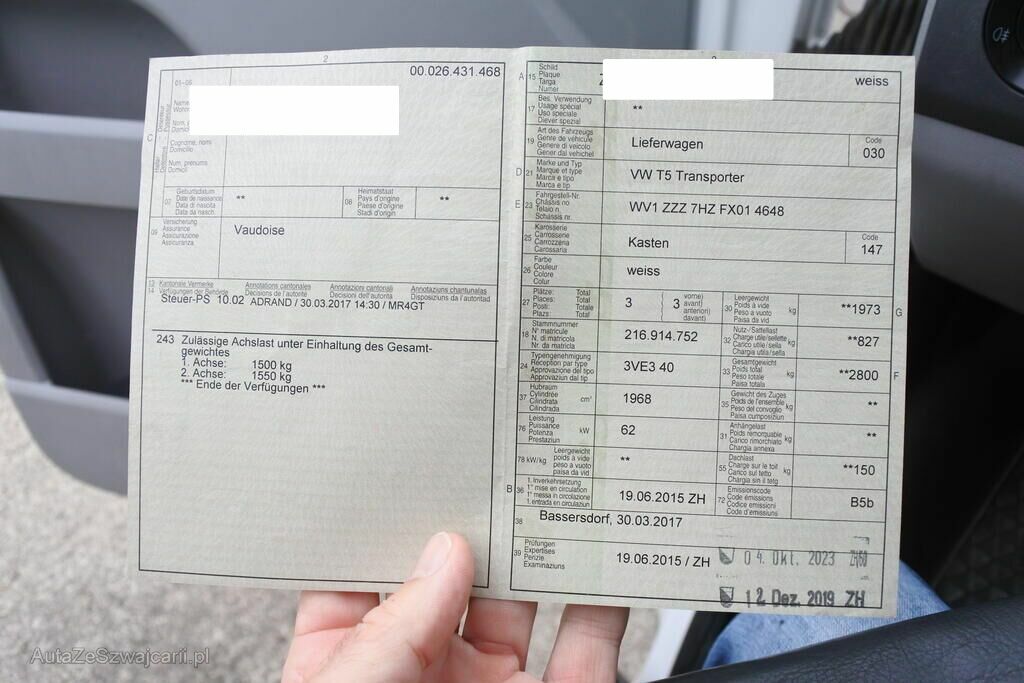 2
00.026.431.468
01-06
Name
C
Cognome, nomi
Domicilio
Num, prenums
Domicil
07
Geburtsdatum
Date de naissance
Data di nascita
Data da nasch.
**
08
Heimatstaat
Pays d'origine
Paese d'origine
Stadi d'origin
**
09
Versicherung
Assurance
Assicurazione
Assicuranza
Vaudoise
13
14
Kantonale Vermerke
Verfügungen der Behörde
Annotations cantonales
Décisions de l'autorité
Annotazioni cantonali
Decisioni dell'autorità
Annotaziuns chantunalas
Disposiziuns da l'autoritad
Steuer-PS 10.02 ADRAND / 30.03.2017 14:30 / MR4GT
243 Zulässige Achslast unter Einhaltung des Gesamt-
gewichtes
1. Achse: 1500 kg
2. Achse: 1550 kg
*** Ende der Verfügungen ***
A
15
Schild
Plaque
Targa
Numer
weiss
17
Bes. Verwendung
Usage spécial
Uso speciale
Diever spezial
**
19
Art des Fahrzeugs
Genre de véhicule
Genere di veicolo
Gener dal vehichel
Lieferwagen
Code
030
D
21
Marke und Typ
Marque et type
Marca e tipo
Marca e tip
VW T5 Transporter
E
23
Fahrgestell-Nr.
Châssis no
Telaio n.
Schassis nr.
WV1 ZZZ 7HZ FX01 4648
25
Karosserie
Carrosserie
Carrozzeria
Carossaria
Kasten
Code
147
26
Farbe
Couleur
Colore
Colur
weiss
27
Plätze: Total
Places: Total
Posti: Totale
Plazs: Total
3
3
vorne)
avant)
anteriori)
davant)
30
Leergewicht
Poids à vide
Peso a vuoto
Paisa da vid
kg
**1973
G
18
Stammnummer
N° matricule
N. di matricola
Nr. da matricla
216.914.752
32
Nutz-/Sattellast
Charge utile/sellette
Carico utile/sella
Chargia utila/sella
kg
**827
24
Typengenehmigung
Réception par type
Approvazione del tipo
Approvaziun dal tip
3VE3 40
33
Gesamtgewicht
Poids total
Peso totale
Paisa totala
kg
**2800
F
37
Hubraum
Cylindrée
Cilindrata
Cilindrada
cm³
1968
35
Gewicht des Zuges
Poids de l'ensemble
Peso del convoglio
Paisa cumposiziun
kg
**
76
Leistung
Puissance
Potenza
Prestaziun
kW
62
31
Anhängelast
Poids remorquable
Carico rimorchiato
Chargia annexa
kg
**
78
kW/kg
Leergewicht
poids à vide
peso a vuoto
paisa da vid
**
55
Dachlast
Charge sur le toit
Carico sul tetto
Chargia sin il tetg
kg
**150
B
36
1. Inverkehrsetzung
1re mise en circulation
1a messa in circolazione
1. entrada en circulaziun
19.06.2015 ZH
72
Emissionscode
Code émissions
Codice emissioni
Code d'emissiuns
B5b
38
Bassersdorf, 30.03.2017
39
Prüfungen
Expertises
Perizie
Examinaziuns
19.06.2015 / ZH
04. Okt. 2023
12 Dez. 2019 ZH
AutaZeSzwajcarii.pl